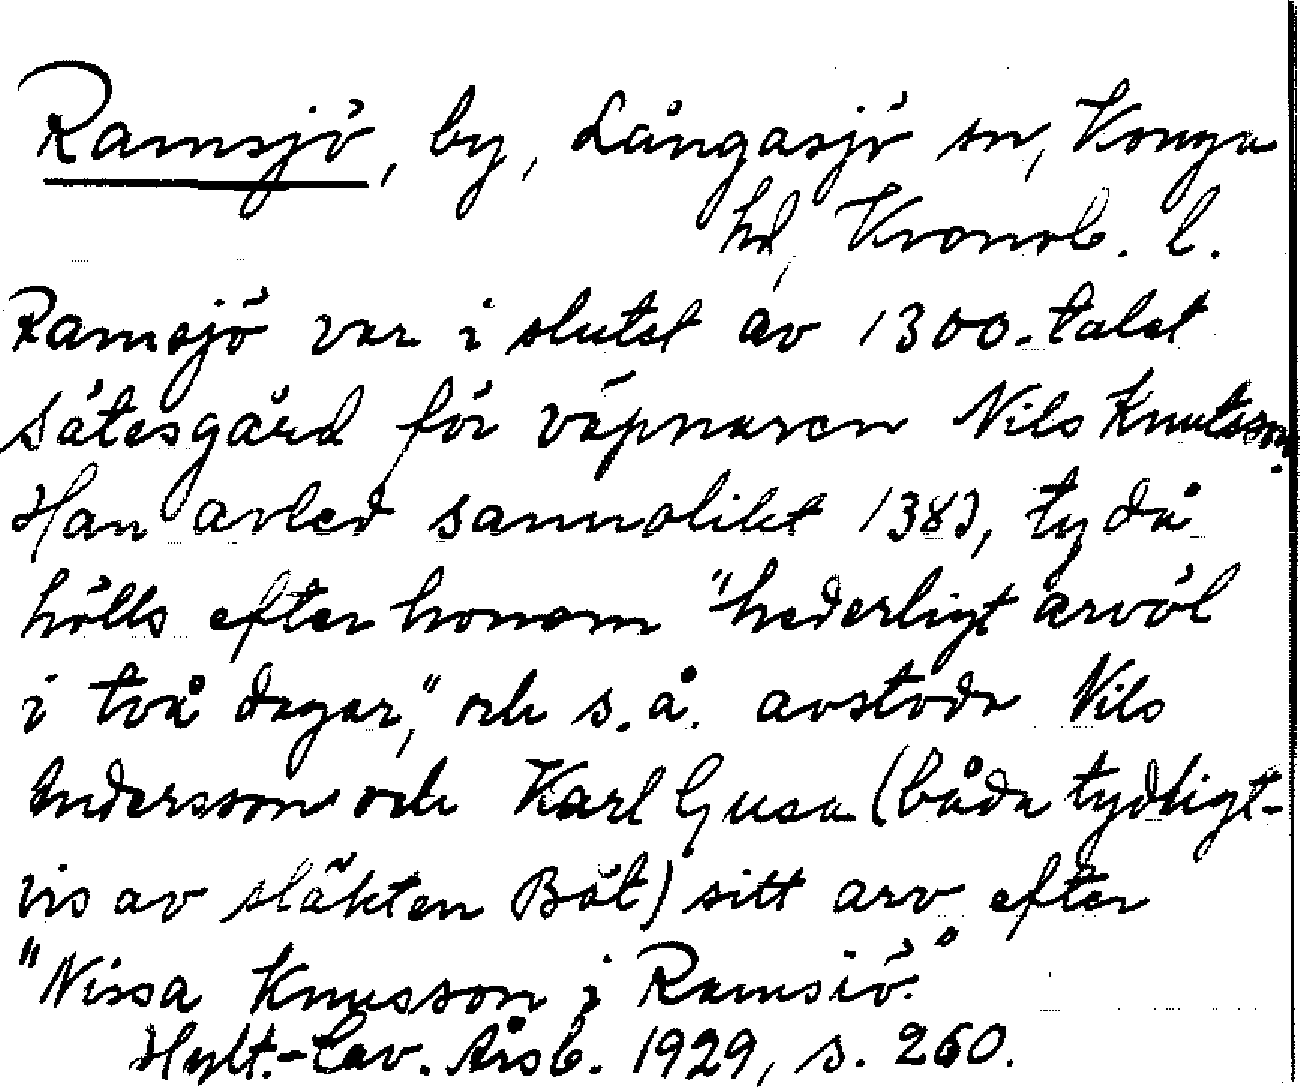 Ramsjö, by, Långasjö sn, Konga
hd, Kronob. l.
Ramsjö var i slutet av 1300-talet
sätesgård för väpnaren Nils Knutsson.
Han avled sannolikt 1383, ty då
hölls efter honom "hederligt arvöl
i två dagar," och s.å. avstodo Nils
Andersson och Karl Gusa (båda tydligt-
vis av släkten Båt) sitt arv efter
"Nissa Knusson i Ramsiö."
Hylt.-Cav. Årsb. 1929, s. 260.